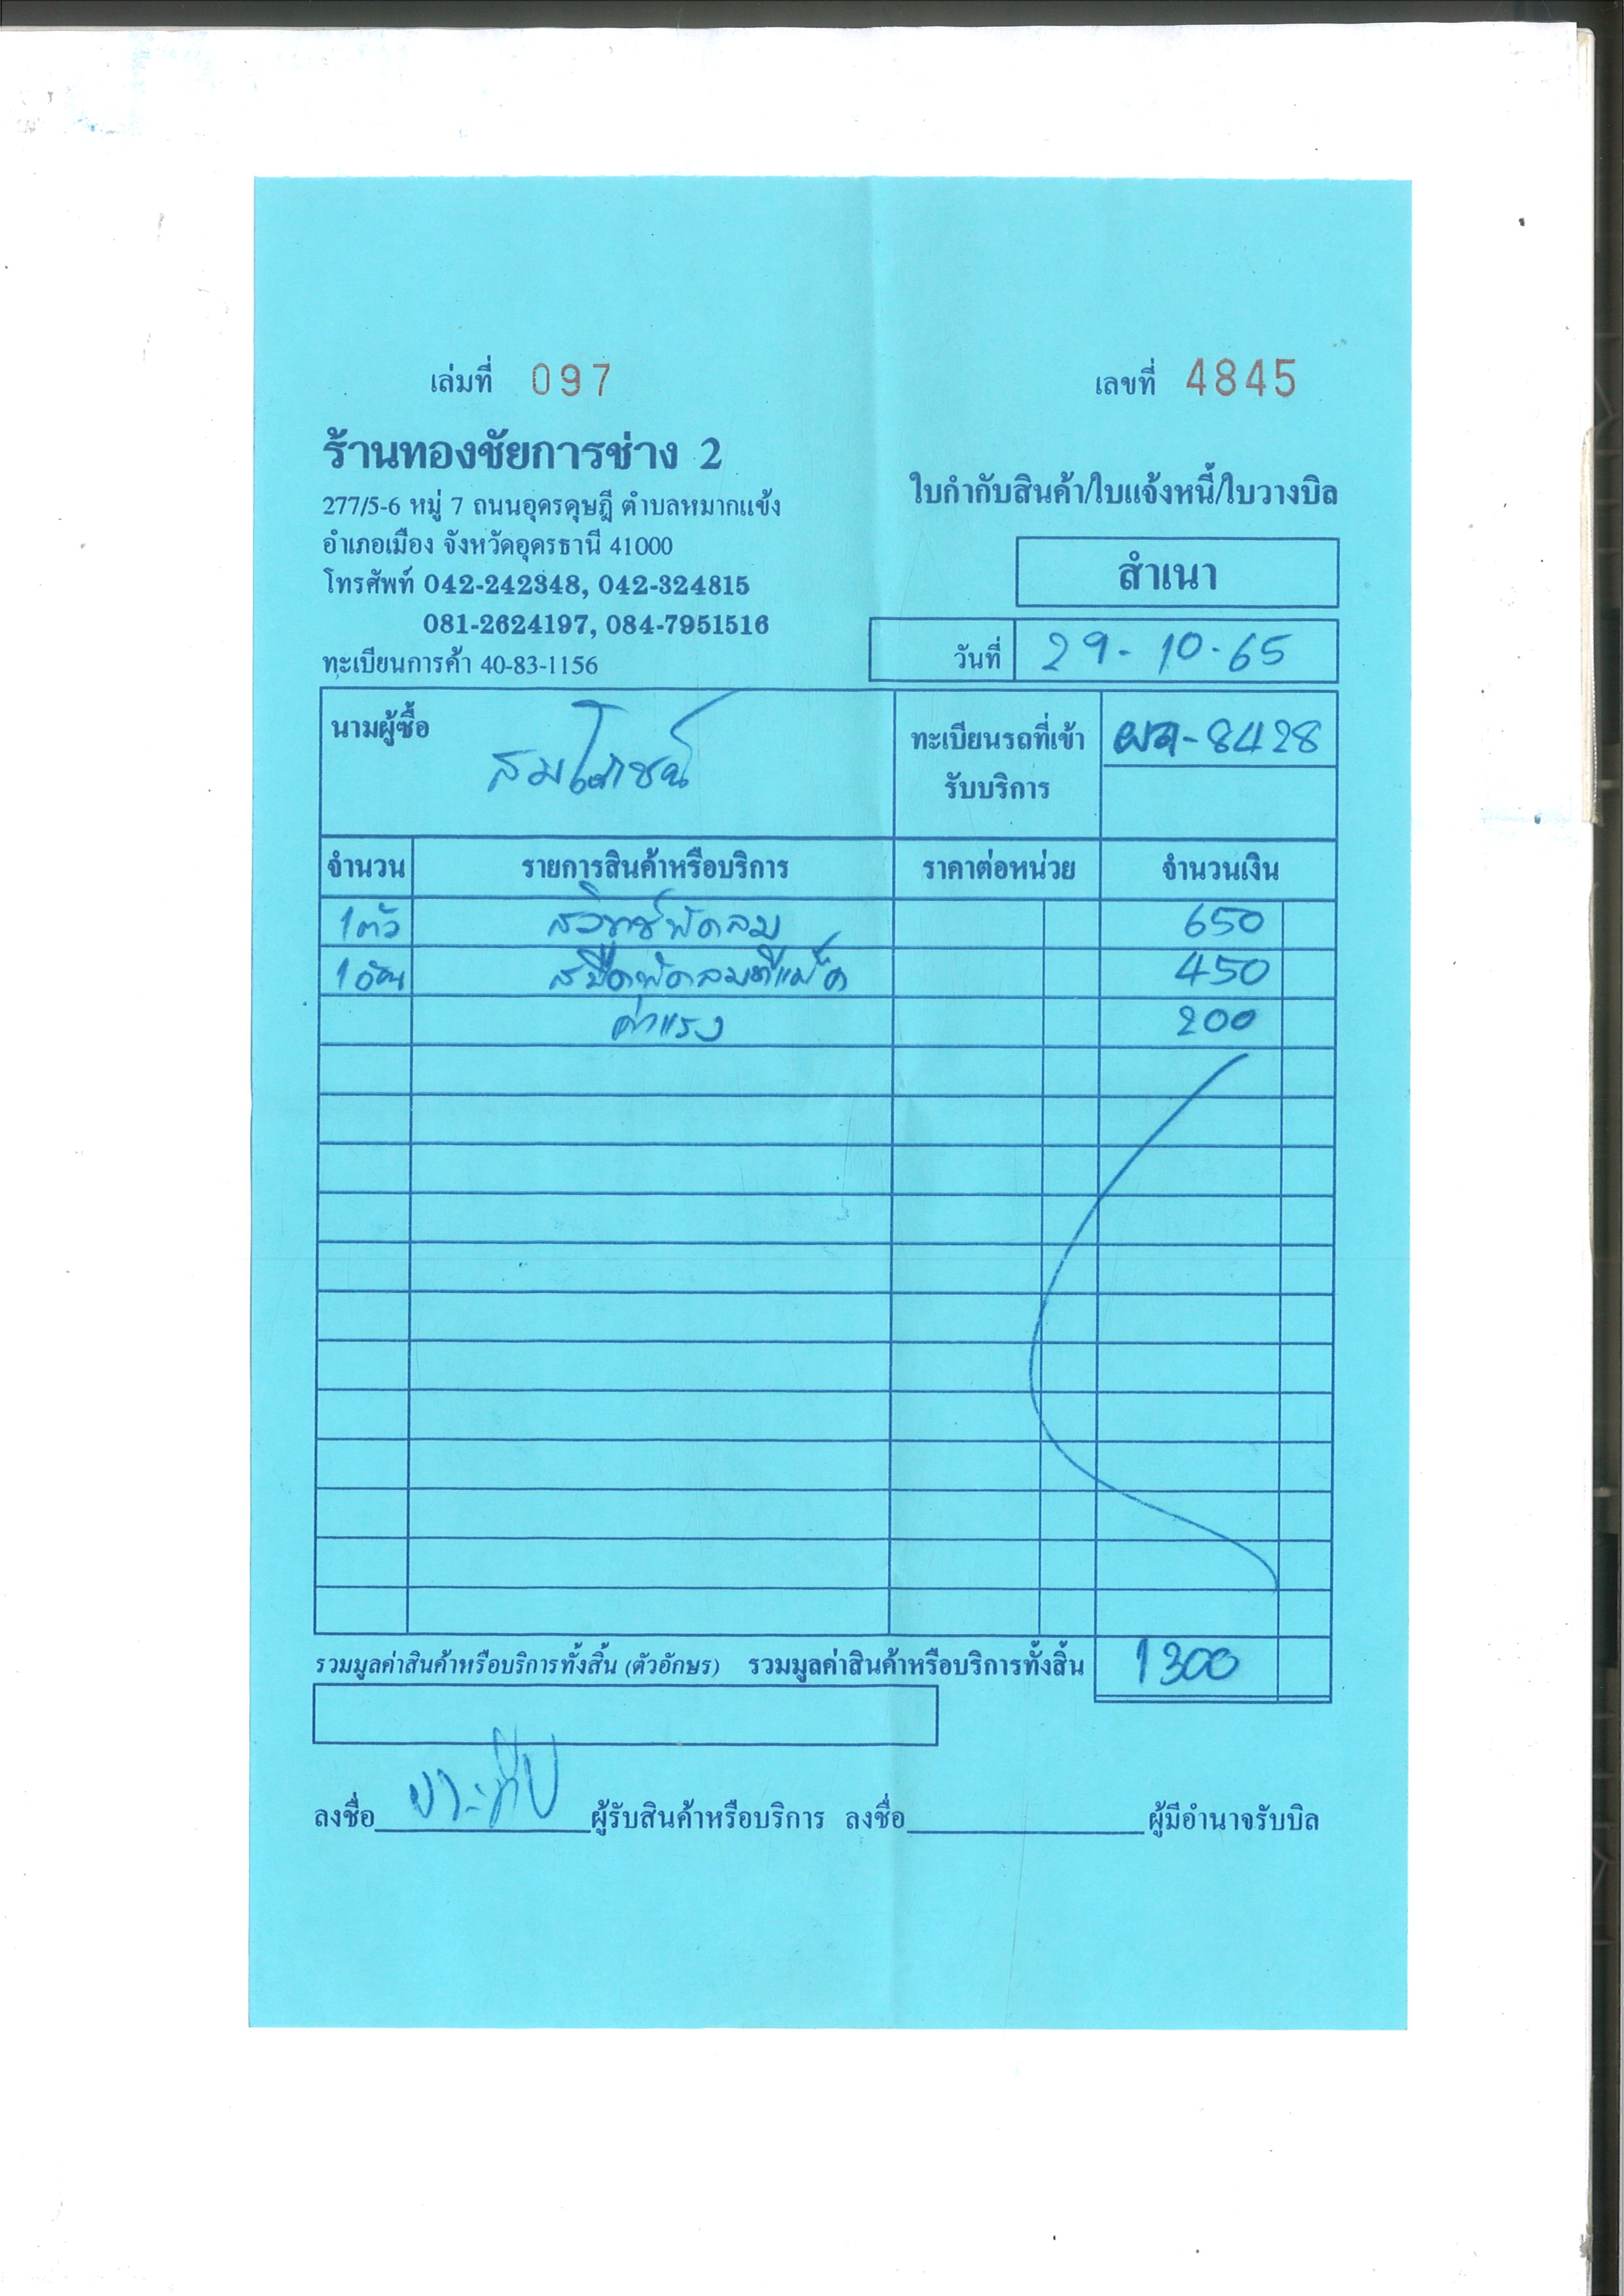 เล่มที่ 097
เลขที่ 4845
ร้านทองชัยการช่าง 2
277/5-6 หมู่ 7 ถนนอุดรดุษฎี ตำบลหมากแข้ง
อำเภอเมือง จังหวัดอุดรธานี 41000
โทรศัพท์ 042-242348, 042-324815
081-2624197, 084-7951516
ทะเบียนการค้า 40-83-1156
ใบกำกับสินค้า/ใบแจ้งหนี้/ใบวางบิล
สำเนา
วันที่ 29-10-65
นามผู้ซื้อ สมโภชน์
ทะเบียนรถที่เข้ารับบริการ 8428
จำนวน รายการสินค้าหรือบริการ ราคาต่อหน่วย จำนวนเงิน
1 ตัว สวิทช์พัดลม 650
1 อัน สปีดพัดลม 450
ค่าแรง 200
รวมมูลค่าสินค้าหรือบริการทั้งสิ้น (ตัวอักษร) รวมมูลค่าสินค้าหรือบริการทั้งสิ้น 1300
ลงชื่อ ประทีป ผู้รับสินค้าหรือบริการ ลงชื่อ ผู้มีอำนาจรับบิล